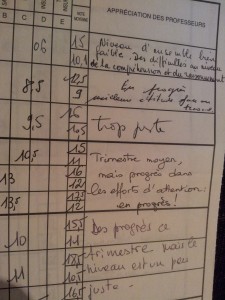 C D E NOTE MAXIMA APPRÉCIATION DES PROFESSEURS
06 15 Niveau d'ensemble bien
10,1 faible. Des difficultés au niveau
de la compréhension et du raisonnement
8,5 17,5 En progrès
9 meilleure attitude face au travail
9,5 16
10,5 trop juste
10,5 15
11 Trimestre moyen,
13 16 mais progrès dans
12 les efforts d'attention :
13,5 17,5 en progrès !
12
15 Des progrès ce
10 11 trimestre mais le
18,5 niveau est un peu
11 10,5
16,5 juste.